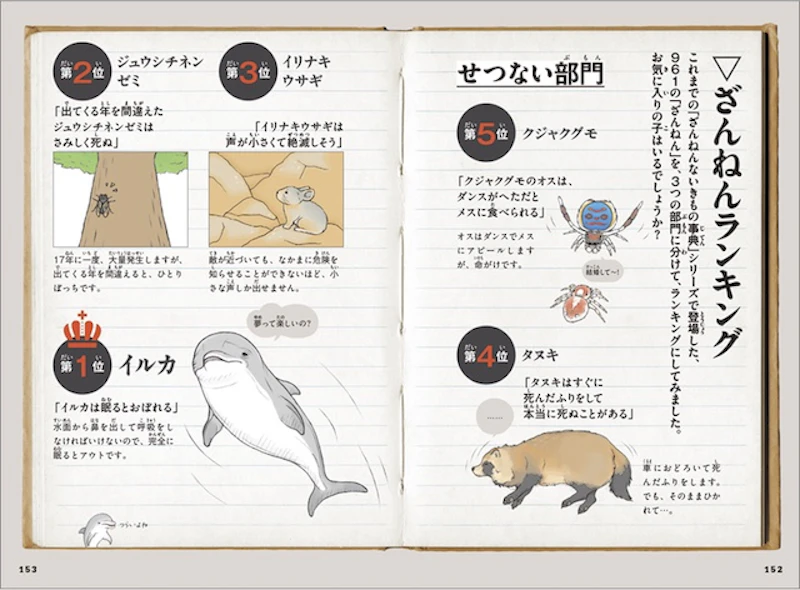 ▽ざんねんランキング
これまでの「ざんねんないきもの事典」シリーズで登場した、
961の「ざんねん」を、3つの部門に分けて、ランキングにしてみました。
お気に入りの子はいるでしょうか？
せつない部門
第5位 クジャクグモ
「クジャクグモのオスは、
ダンスがへただと
メスに食べられる」
オスはダンスでメス
にアピールします
が、命がけです。
結婚して〜!
第4位 タヌキ
「タヌキはすぐに
死んだふりをして
本当に死ぬことがある」
……
車におどろいて死
んだふりをします。
でも、そのままひか
れて…。
152
第3位 イリナキ
ウサギ
「イリナキウサギは
声が小さくて絶滅しそう」
敵が近づいても、なかまに危険を
知らせることができないほど、小
さな声しか出せません。
第2位 ジュウシチネン
ゼミ
「出てくる年を間違えた
ジュウシチネンゼミは
さみしく死ぬ」
17年に一度、大量発生しますが、
出てくる年を間違えると、ひとり
ぼっちです。
第1位 イルカ
「イルカは眠るとおぼれる」
水面から鼻を出して呼吸をし
なければいけないので、完全に
眠るとアウトです。
夢って楽しいの？
つらいよね
153